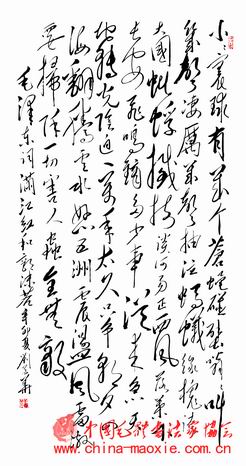 小小寰球有几个苍蝇碰壁嗡嗡叫
几声凄厉几声抽泣蚂蟻缘槐夸
大國蚍蜉撼树谈何易正西風落葉下
长安飞鸣镝多少事从来急天
地转光阴迫一萬年太久只争朝夕四
海翻腾雲水怒五洲震荡風雷激
要掃除一切害人蟲全無敵
毛泽东词满江红和郭沫若辛卯夏刘
中国毛体书法家协会
www.china-maoxie.com.cn